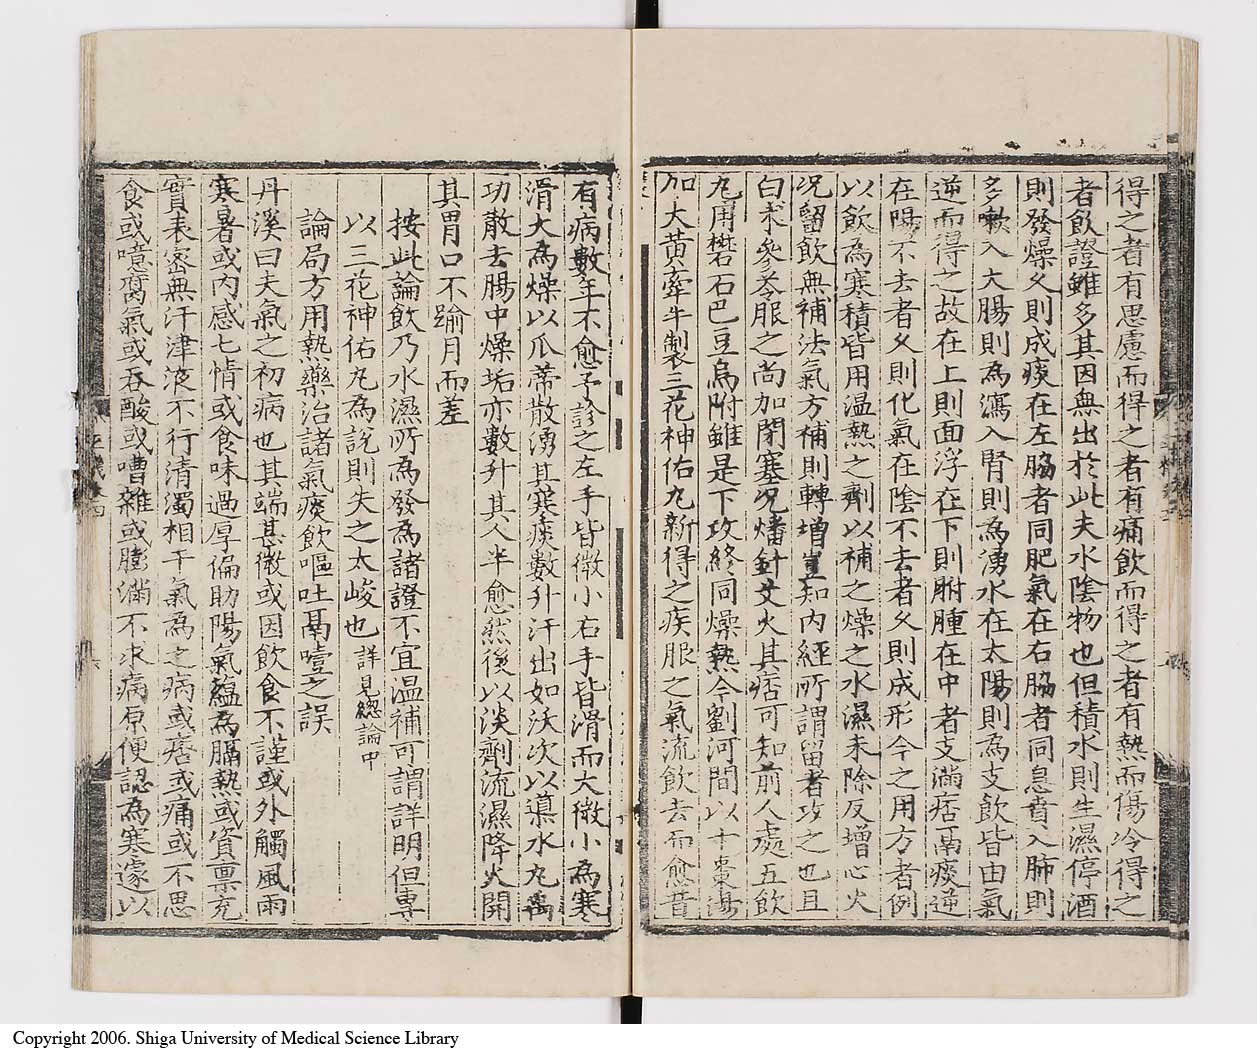 得之者有思慮而得之者有痛飲而得之者有熱而傷冷得之
者飲證雖多其因無出於此夫水陰物也但積水則生濕停酒
則發燥久則成痰在左脇者同肥氣在右脇者同息賁入肺則
多嗽入大腸則為瀉入腎則為湧水在太陽則為支飲皆由氣
逆而得之故在上則面浮在下則胕腫在中者支滿痞鬲痰逆
在陽不去者久則化氣在陰不去者久則成形今之用方者例
以飲為寒積皆用温熱之劑以補之燥之水濕未除反增心火
况留飲無補法氣方補則轉增豈知内經所謂留者攻之也且
白术參苓服之尚加閉塞况燔針艾火其痞可知前人處五飲
丸用礬石巴豆烏附雖是下攻終同燥熱今劉河間以十棗湯
加大黃牽牛製三花神佑丸新得之疾服之氣流飲去而愈昔
有病數年不愈予診之左手皆微小右手皆滑而大微小為寒
滑大為燥以瓜蒂散湧其寒痰數升汗出如沃次以導水丸禹
功散去腸中燥垢亦數升其人半愈然後以淡劑流濕降火開
其胃口不踰月而差
按此論飲乃水濕所為發為諸證不宜温補可謂詳明但專
以三花神佑丸為說則失之太峻也詳見總論中
論局方用熱藥治諸氣痰飲嘔吐鬲噎之誤
丹溪曰夫氣之初病也其端甚微或因飲食不謹或外觸風雨
寒暑或内感七情或食味過厚偏助陽氣蘊為膈熱或資禀充
實表密無汗津液不行清濁相干氣為之病或痞或痛或不思
食或噫腐氣或吞酸或嘈雜或膨滿不求病原便認為寒遽以